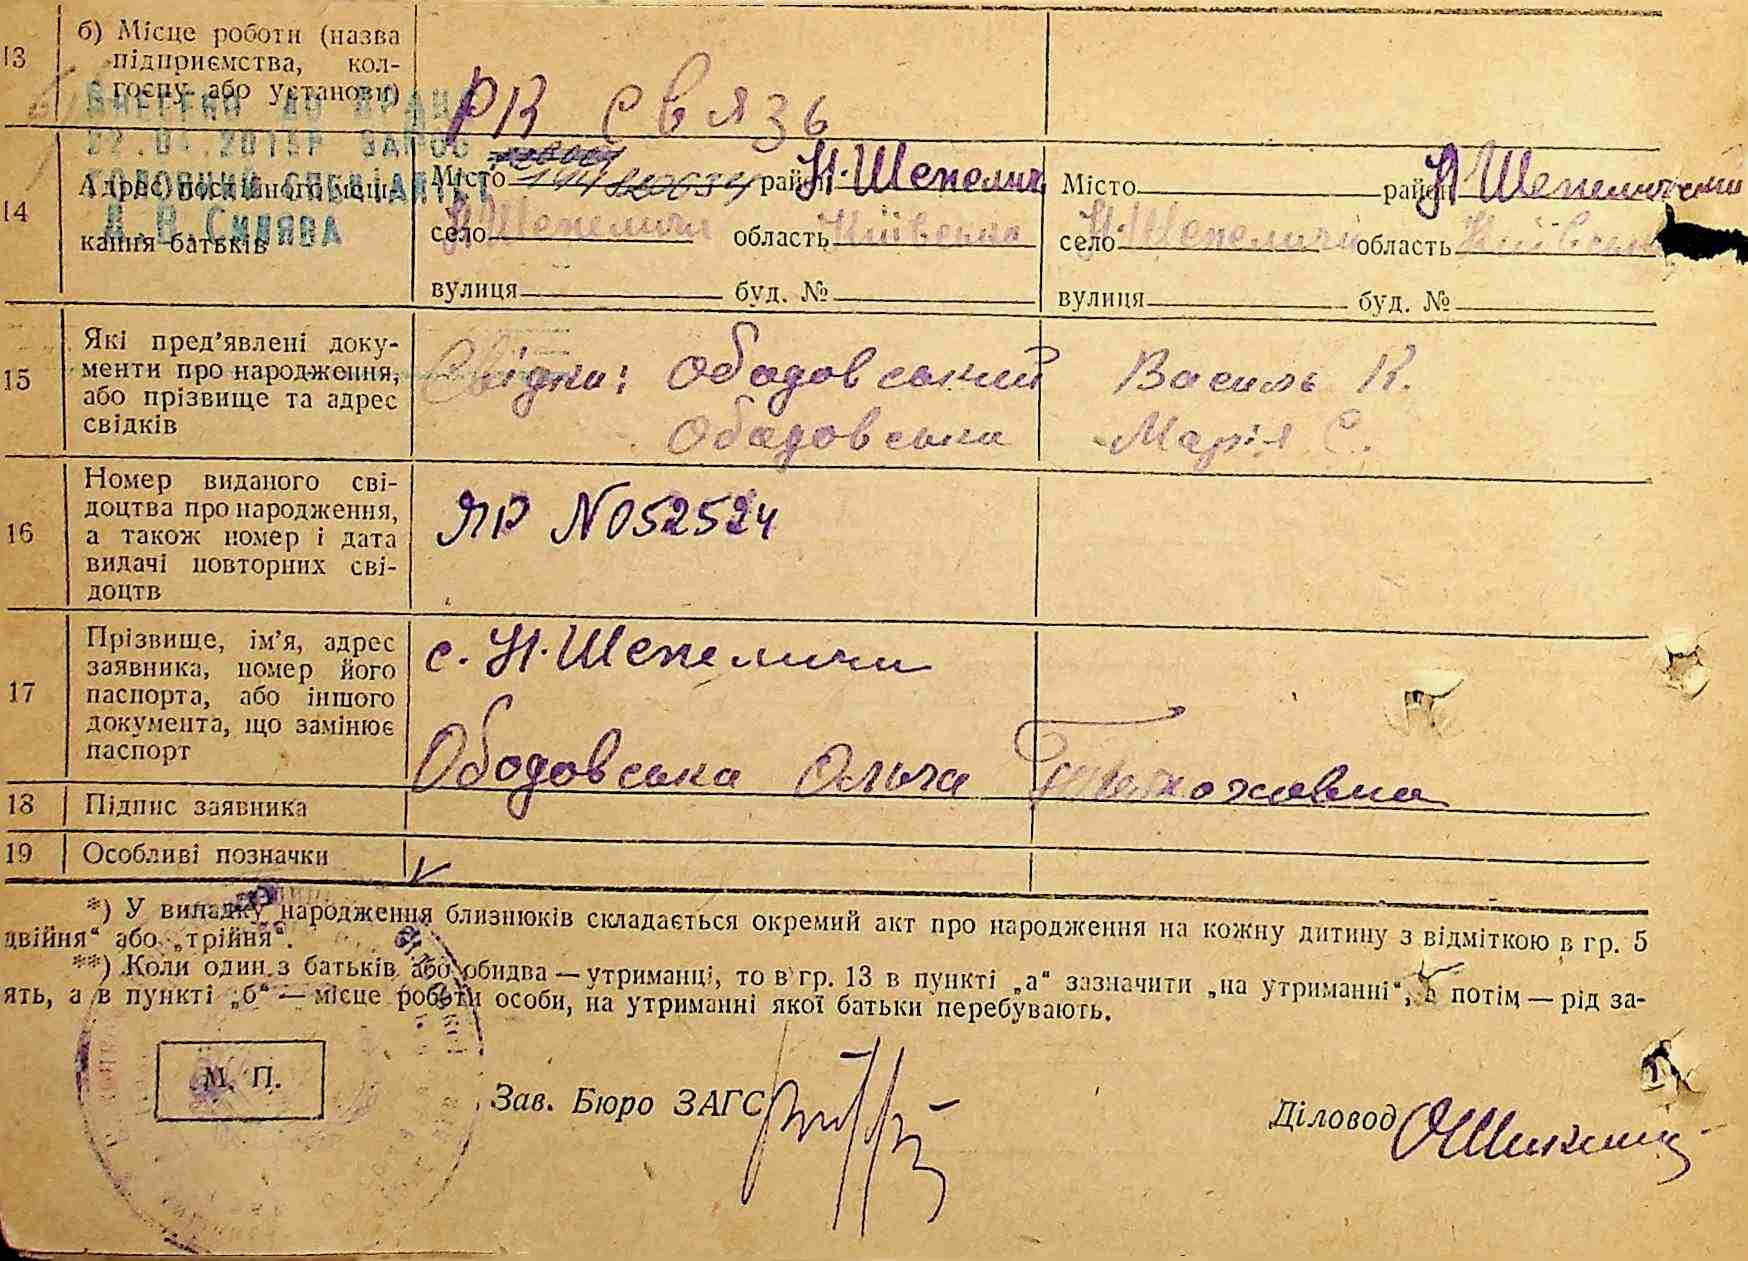 13 б) Місце роботи (назва
підприємства, кол-
госпу або установи)
РК Связь
ВНЕСЕНО ДО ДРАЦС
22.04.2015Р
ГОЛОВНИЙ СПЕЦІАЛІСТ
14 Адрес постійного меш-
кання батьків
Місто район Н-Шепелич Місто район Н Шепеличський
село Н Шепеличи область Київська село Н-Шепеличи область Київськ
вулиця буд. № вулиця буд. №
15 Які пред'явлені доку-
менти про народження,
або прізвище та адрес
свідків
Свідки: Ободовський Василь К.
Ободовська Марія С.
16 Номер виданого сві-
доцтва про народження,
а також номер і дата
видачі повторних сві-
доцтв
ЯР №052524
17 Прізвище, ім'я, адрес
заявника, номер його
паспорта, або іншого
документа, що замінює
паспорт
с. Н-Шепеличи
Ободовська Ольга
18 Підпис заявника
19 Особливі позначки
*) У випадку народження близнюків складається окремий акт про народження на кожну дитину з відміткою в гр. 5
двійня" або „трійня".
**) Коли один з батьків або обидва — утриманці, то в гр. 13 в пункті „а" зазначити „на утриманні", а потім — рід за-
ять, а в пункті „б" — місце роботи особи, на утриманні якої батьки перебувають.
М. П.
Зав. Бюро ЗАГС Діловод